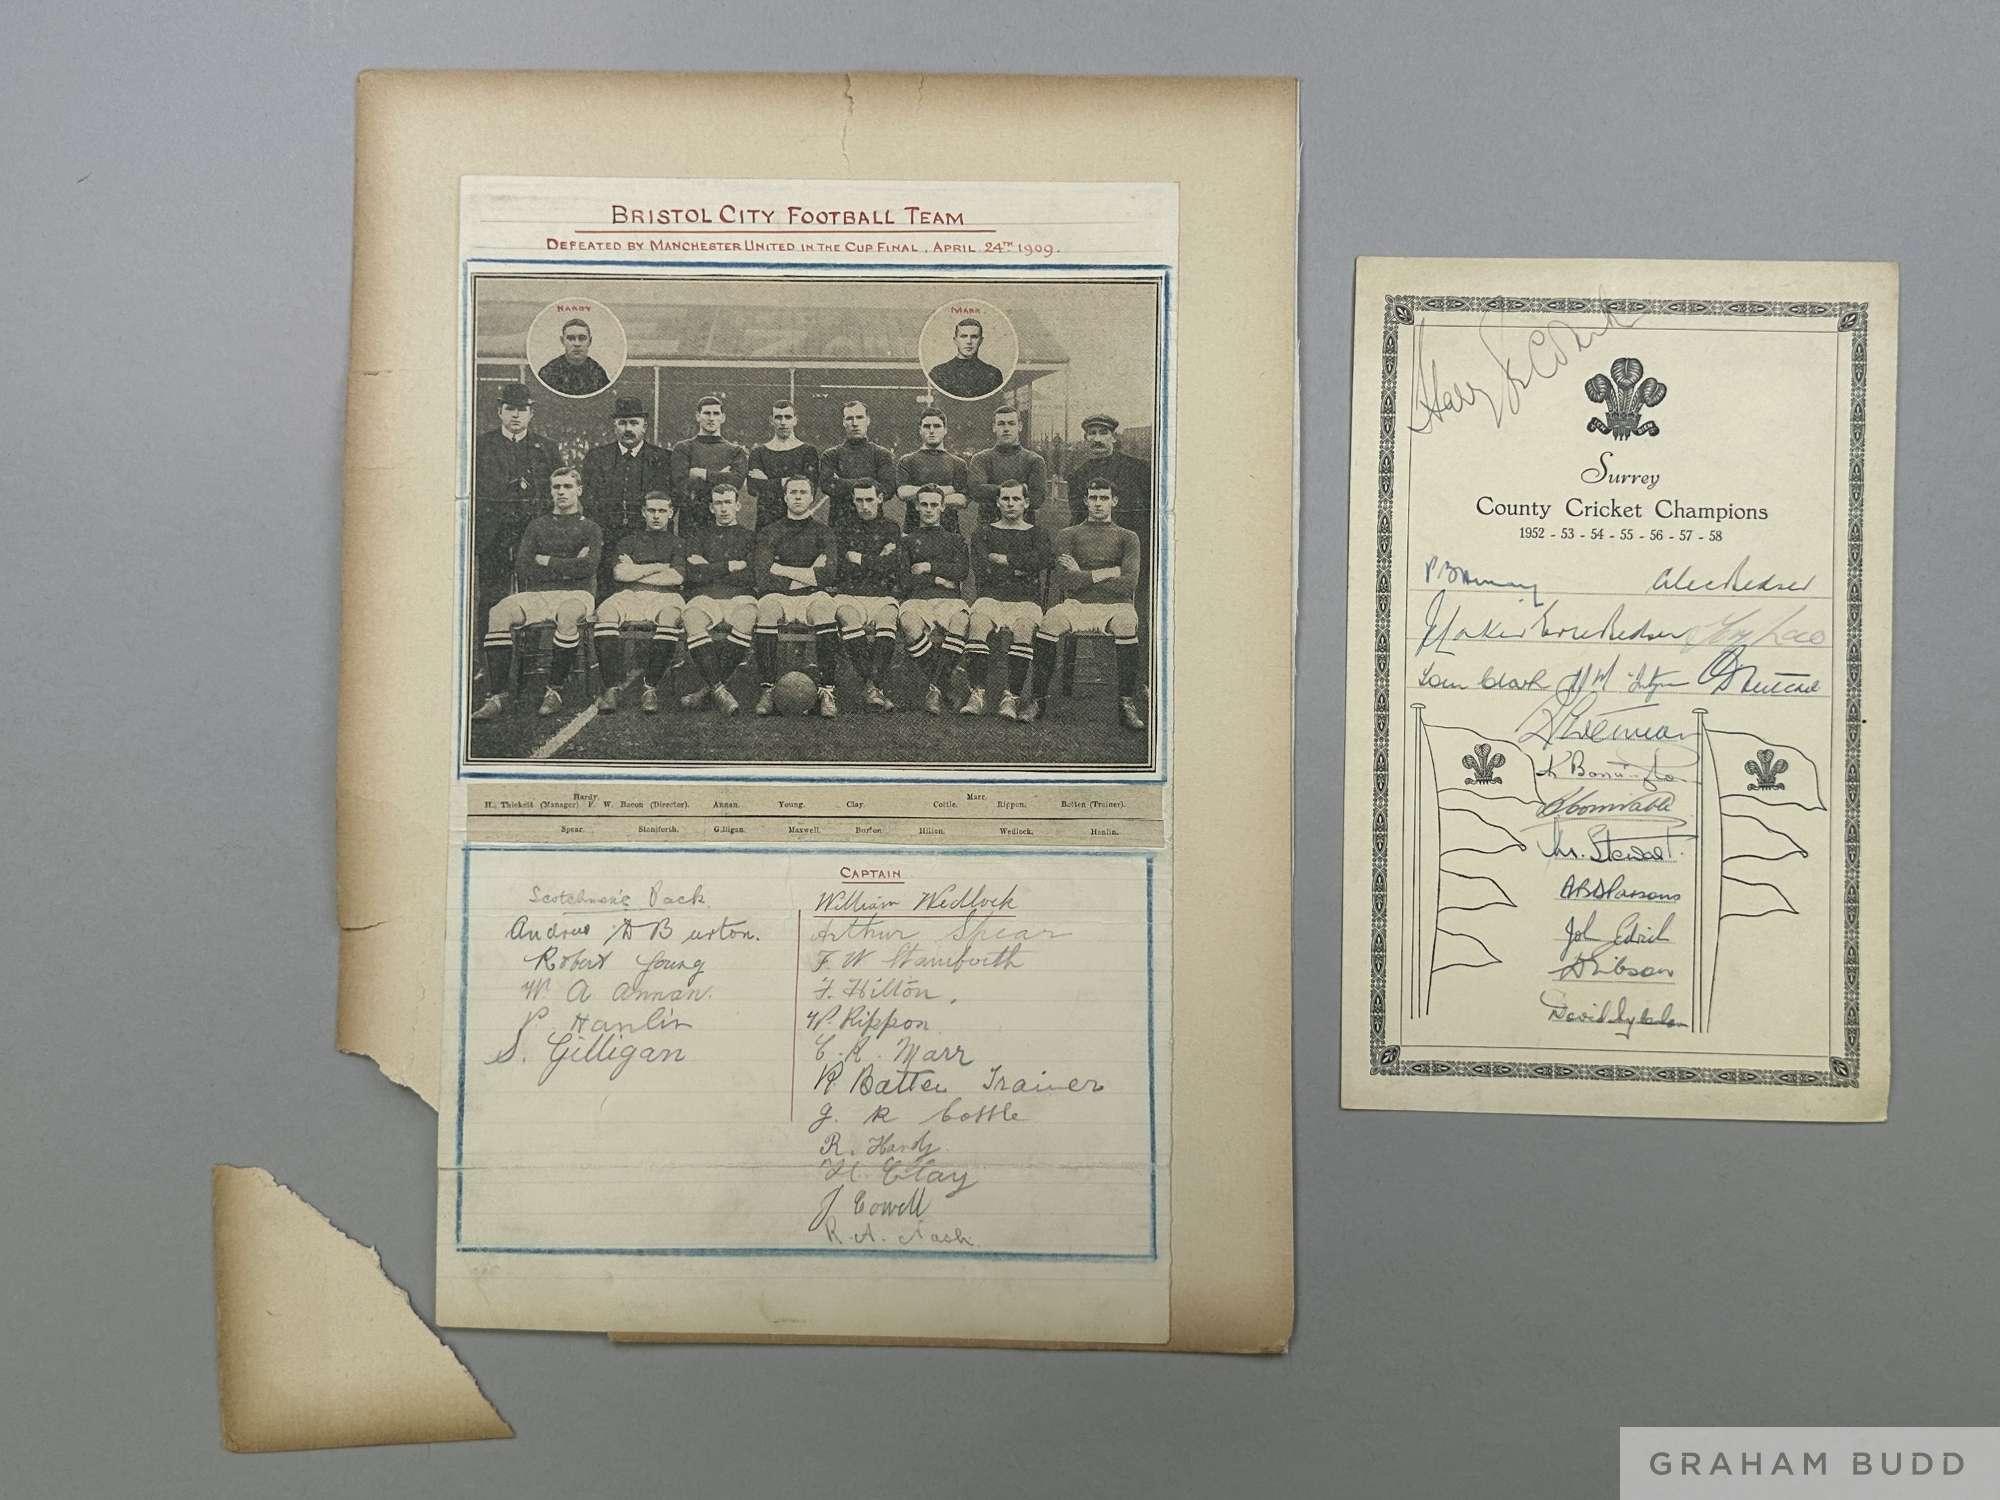 BRISTOL CITY FOOTBALL TEAM
DEFEATED BY MANCHESTER UNITED IN THE CUP FINAL, APRIL 24TH 1909.
HARDY
MARR
Hardy. Marr.
H. Thickett (Manager) F. W. Bacon (Director). Annan. Young. Clay. Cottle. Rippon. Batten (Trainer).
Spear. Staniforth. Gilligan. Maxwell. Burton Hilton. Wedlock. Hanlin.
CAPTAIN
Pack.
Andrew Burton.
Robert Young
W. A Annan.
P. Hanlin
S. Gilligan
William Wedlock
Arthur Spear
F. W Staniforth
F. Hilton.
W. Rippon.
C. R. Marr
R Batten Trainer
g. R Cottle
R. Hardy.
H. Clay
J Cowell
R. A. Nash.
Surrey
County Cricket Champions
1952 - 53 - 54 - 55 - 56 - 57 - 58
Alec Bedser
Eric Bedser Tony Lock
Tom Clark
K Barrington
Stewart.
A B D Parsons
John Edrich
D Gibson
David Sydenham
GRAHAM BUDD